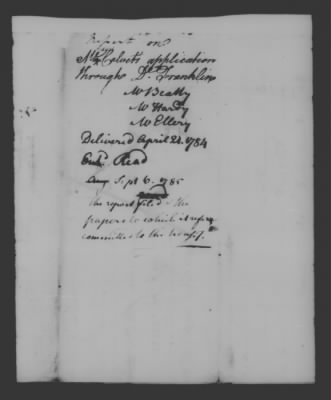 Report on
application
through Dr. Franklin
Mr Beatty
Mr Hardy
Mr Ellery
Delivered April 24. 1784
Read
Sept 6. 1785
the report filed & the
papers to which it refers
committed to the